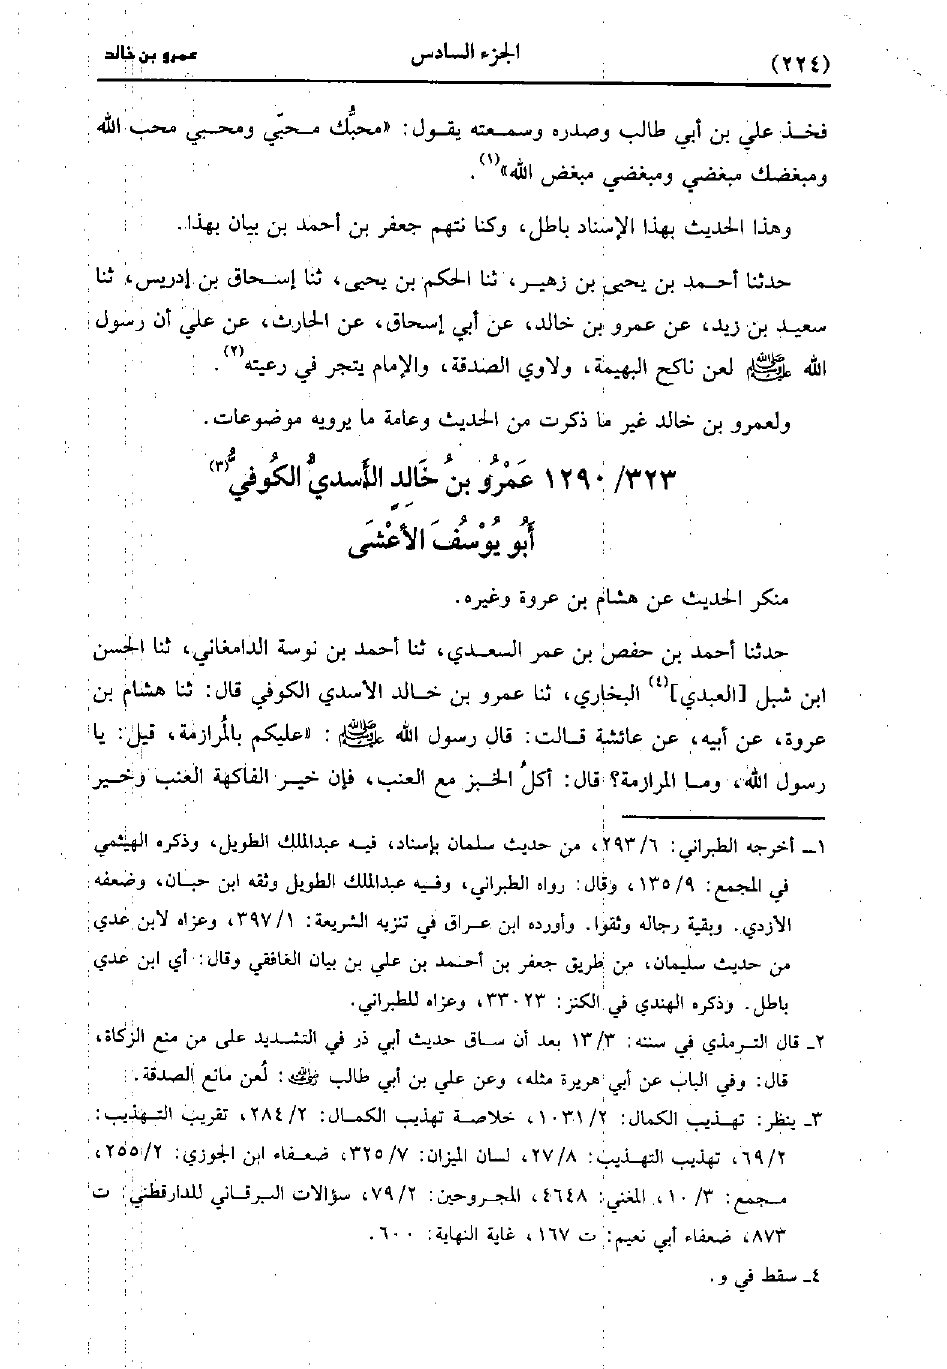 (٢٢٤) الجزء السادس عمرو بن خالد
فخذ علي بن أبي طالب وصدره وسمعته يقول: «محبُّك محبّي ومحبي محب الله
ومبغضك مبغضي ومبغضي مبغض الله»(١).
وهذا الحديث بهذا الإسناد باطل، وكنا نتهم جعفر بن أحمد بن بيان بهذا.
حدثنا أحمد بن يحيى بن زهير، ثنا الحكم بن يحيى، ثنا إسحاق بن إدريس، ثنا
سعيد بن زيد، عن عمرو بن خالد، عن أبي إسحاق، عن الحارث، عن علي أن رسول
الله ﷺ لعن ناكح البهيمة، ولاوي الصدقة، والإمام يتجر في رعيته(٢).
ولعمرو بن خالد غير ما ذكرت من الحديث وعامة ما يرويه موضوعات.
١٢٩٠/٣٢٣ عَمْرُو بنُ خَالِدٍ الأَسديُّ الكُوفيُّ(٣)
أَبُو يُوْسُفَ الأَعْشَى
منكر الحديث عن هشام بن عروة وغيره.
حدثنا أحمد بن حفص بن عمر السعدي، ثنا أحمد بن نوسة الدامغاني، ثنا الحسن
ابن شبل [العبدي](٤) البخاري، ثنا عمرو بن خالد الأسدي الكوفي قال: ثنا هشام بن
عروة، عن أبيه، عن عائشة قالت: قال رسول الله ﷺ: «عليكم بالمُرازمة، قيل: يا
رسول الله، وما المرازمة؟ قال: أكلُ الخبز مع العنب، فإن خير الفاكهة العنب وخير
١ـ أخرجه الطبراني: ٢٩٣/٦، من حديث سلمان بإسناد، فيه عبدالملك الطويل، وذكره الهيثمي
في المجمع: ١٣٥/٩، وقال: رواه الطبراني، وفيه عبدالملك الطويل وثقه ابن حبان، وضعفه
الأزدي. وبقية رجاله وثقوا. وأورده ابن عراق في تنزيه الشريعة: ٣٩٧/١، وعزاه لابن عدي
من حديث سليمان، من طريق جعفر بن أحمد بن علي بن بيان الغافقي وقال: أي ابن عدي
باطل. وذكره الهندي في الكنز: ٣٣٠٢٣، وعزاه للطبراني.
٢ـ قال الترمذي في سننه: ١٣/٣ بعد أن ساق حديث أبي ذر في التشديد على من منع الزكاة،
قال: وفي الباب عن أبي هريرة مثله، وعن علي بن أبي طالب : لُعن مانع الصدقة.
٣ـ ينظر: تهذيب الكمال: ١٠٣١/٢، خلاصة تهذيب الكمال: ٢٨٤/٢، تقريب التهذيب:
٦٩/٢، تهذيب التهذيب: ٢٧/٨، لسان الميزان: ٣٢٥/٧، ضعفاء ابن الجوزي: ٢٥٥/٢،
مجمع: ١٠/٣، المغني: ٤٦٤٨، المجروحين: ٧٩/٢، سؤالات البرقاني للدارقطني: ت
٨٧٣، ضعفاء أبي نعيم: ت ١٦٧، غاية النهاية: ٦٠٠.
٤ـ سقط في و.